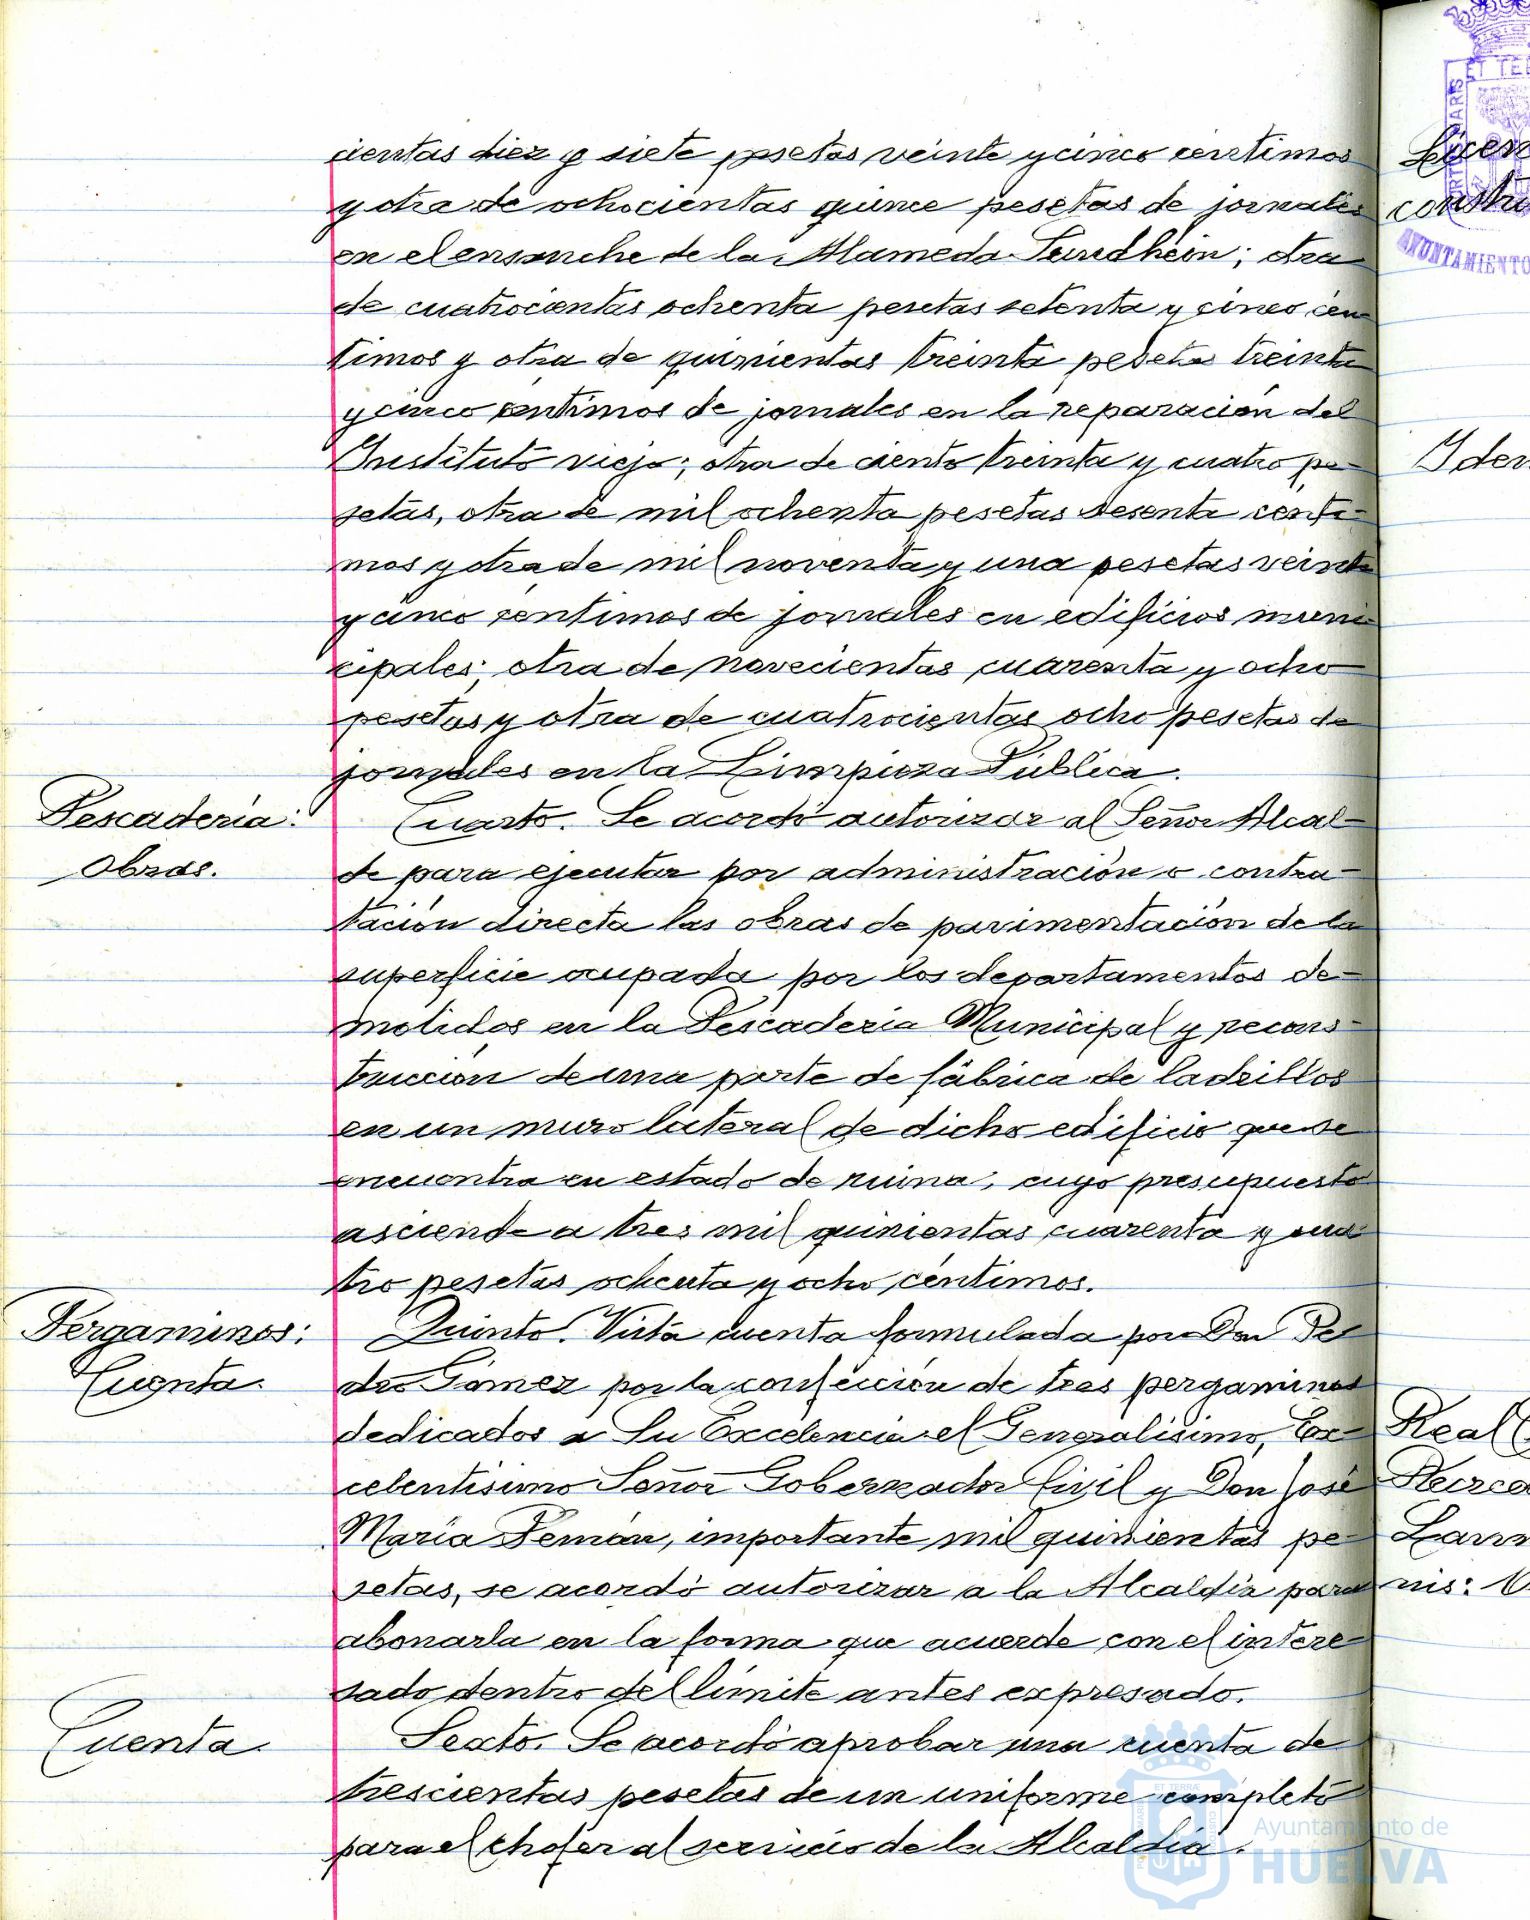 cientas diez y siete pesetas veinte y cinco centimos
y otra de ochocientas quince pesetas de jornales
en el ensanche de la Alameda Sundhein; otra
de cuatrocientas ochenta pesetas setenta y cinco cen
timos y otra de quinientas treinta pesetas treinta
y cinco centimos de jornales en la reparación del
Instituto viejo; otra de ciento treinta y cuatro pe-
setas, otra de mil ochenta pesetas sesenta centi-
mos y otra de mil noventa y una pesetas veinte
y cinco centimos de jornales en edificios muni
cipales; otra de novecientas cuarenta y ocho
pesetas y otra de cuatrocientas ocho pesetas de
jornales en la Limpieza Pública.
Pescadería:
Obras.
Cuarto. Se acordó autorizar al Señor Alcal-
de para ejecutar por administración o contra-
tación directa las obras de pavimentación de la
superficie ocupada por los departamentos de-
molidos en la Pescaderia Municipal y recons-
trucción de una parte de fábrica de ladrillos
en un muro lateral de dicho edificio que se
encuentra en estado de ruina, cuyo presupuesto
asciende a tres mil quinientas cuarenta y cua
tro pesetas ochenta y ocho céntimos.
Pergaminos:
Cuenta.
Quinto. Vista cuenta formulada por Don Pe
dro Gómez por la confección de tres pergaminos
dedicados a Su Excelencia el Generalísimo, Ex-
celentísimo Señor Gobernador Civil y Don José
María Pemán, importante mil quinientas pe-
setas, se acordó autorizar a la Alcaldía para
abonarla en la forma que acuerde con el intere-
sado dentro del límite antes expresado.
Cuenta.
Sexto. Se acordó aprobar una cuenta de
trescientas pesetas de un uniforme completo
para el chofer al servicio de la Alcaldía.
Licen
constru
ET TER
AYUNTAMIENTO
Iden
Real
Recrea
Lawn
nis:
Ayuntamiento de
HUELVA